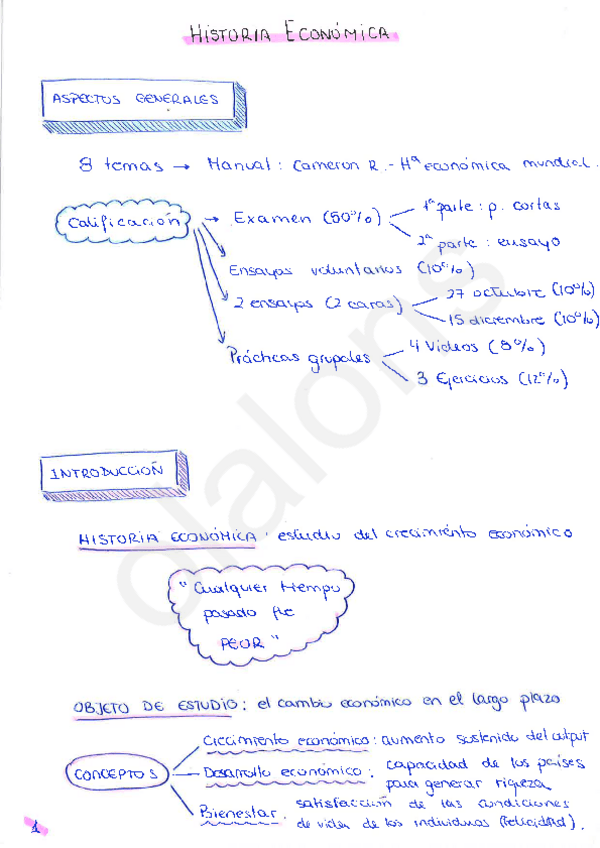 HISTORIA ECONÓMICA
ASPECTOS GENERALES
8 temas → Manual: Cameron R. - Hª económica mundial.
Calificación → Examen (50%)
1ª parte: p. cortas
2ª parte: ensayo
Ensayos voluntarios (10%)
2 ensayos (2 caras)
27 octubre (10%)
15 diciembre (10%)
Prácticas grupales
4 Vídeos (8%)
3 Ejercicios (12%)
INTRODUCCIÓN
HISTORIA ECONÓMICA: estudio del crecimiento económico
"Cualquier tiempo
pasado fue
PEOR"
OBJETO DE ESTUDIO: el cambio económico en el largo plazo
CONCEPTOS
Crecimiento económico: aumento sostenido del output
Desarrollo económico: capacidad de los países
para generar riqueza
Bienestar: satisfacción de las condiciones
de vida de los individuos (felicidad).
1
dalons